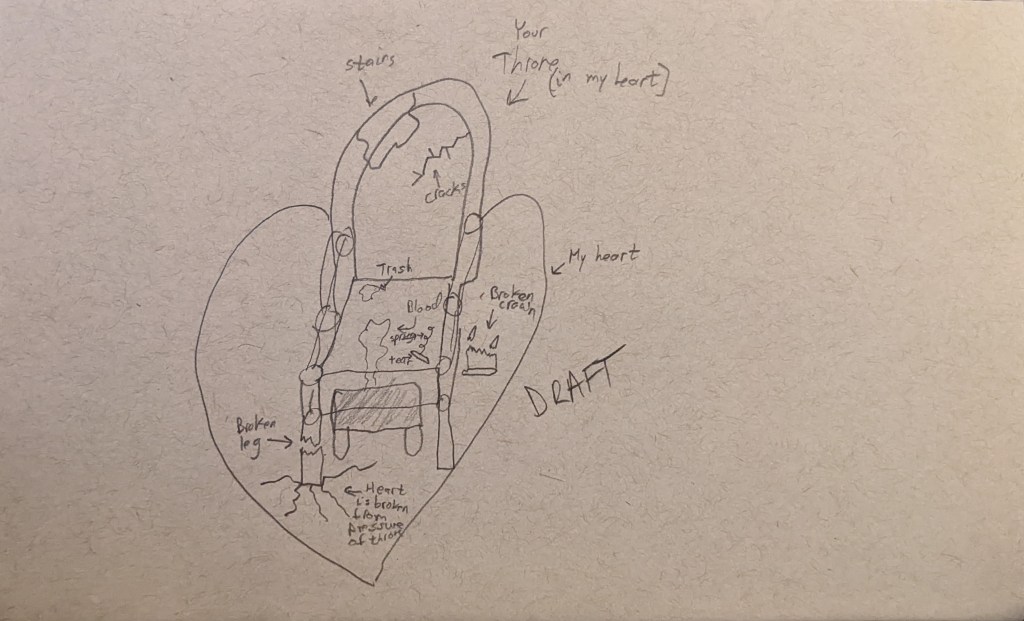 Your
Throne
(in my heart)
stairs
cracks
My heart
Trash
Blood
Broken
crown
tear
DRAFT
Broken
leg
Heart
is broken
from
pressure
of throne